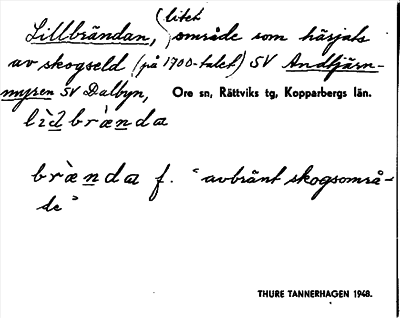 (litet
Lillbrändan, område som härjats
av skogseld (på 1700-talet) SV Andtjärn-
myren SV Dalbyn, Ore sn, Rättviks tg, Kopparbergs län.
lìlbræ̀nda
bræ̀nda f. "avbränt skogsområ-
de"
THURE TANNERHAGEN 1948.